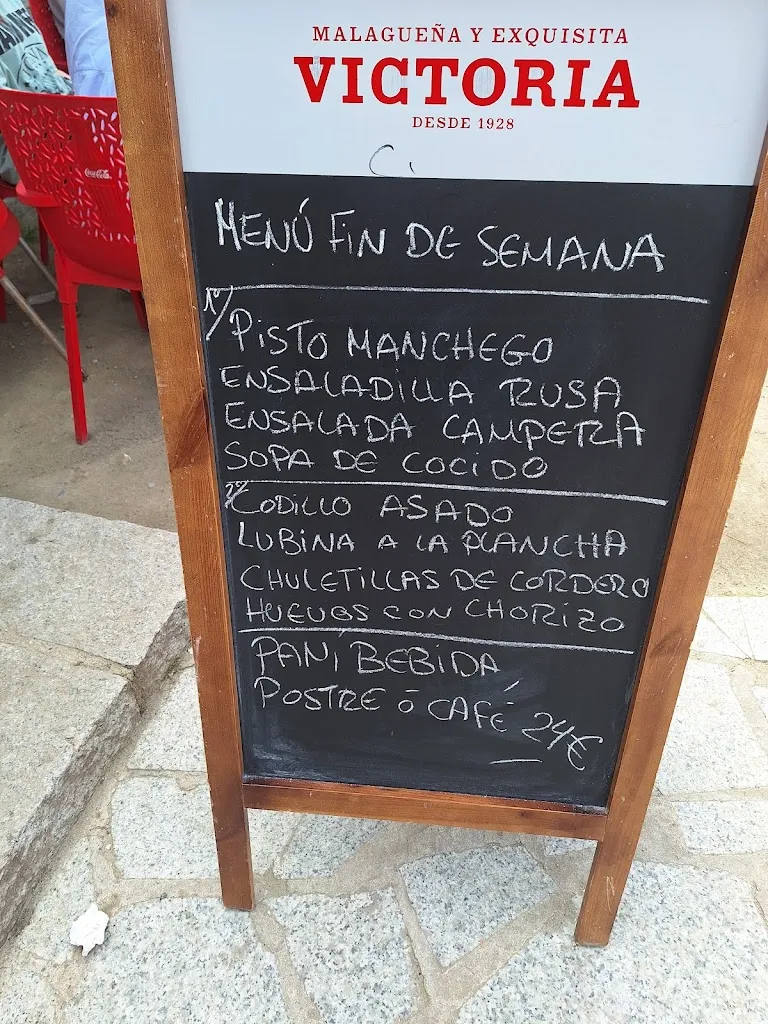 MALAGUEÑA Y EXQUISITA
VICTORIA
DESDE 1928
MENÚ FIN DE SEMANA
1º/
PISTO MANCHEGO
ENSALADILLA RUSA
ENSALADA CAMPERA
SOPA DE COCIDO
2º/
CODILLO ASADO
LUBINA A LA PLANCHA
CHULETILLAS DE CORDERO
HUEVOS CON CHORIZO
PAN, BEBIDA,
POSTRE ó CAFÉ 24€
Coca-Cola